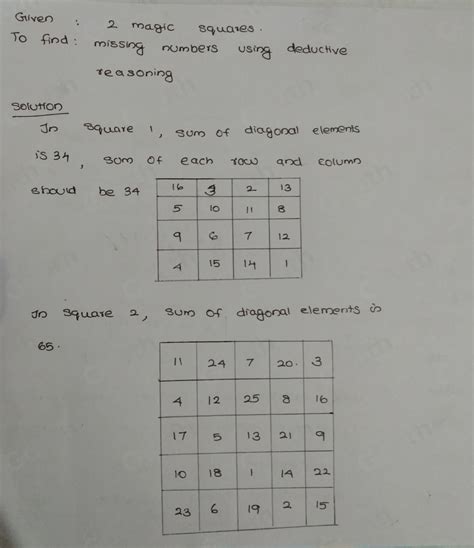 Given : 2 magic squares.
To find : missing numbers using deductive
reasoning
Solution
In square 1, sum of diagonal elements
is 34, sum of each row and column
should be 34
16 3 2 13
5 10 11 8
9 6 7 12
4 15 14 1
In square 2, sum of diagonal elements is
65.
11 24 7 20. 3
4 12 25 8 16
17 5 13 21 9
10 18 1 14 22
23 6 19 2 15